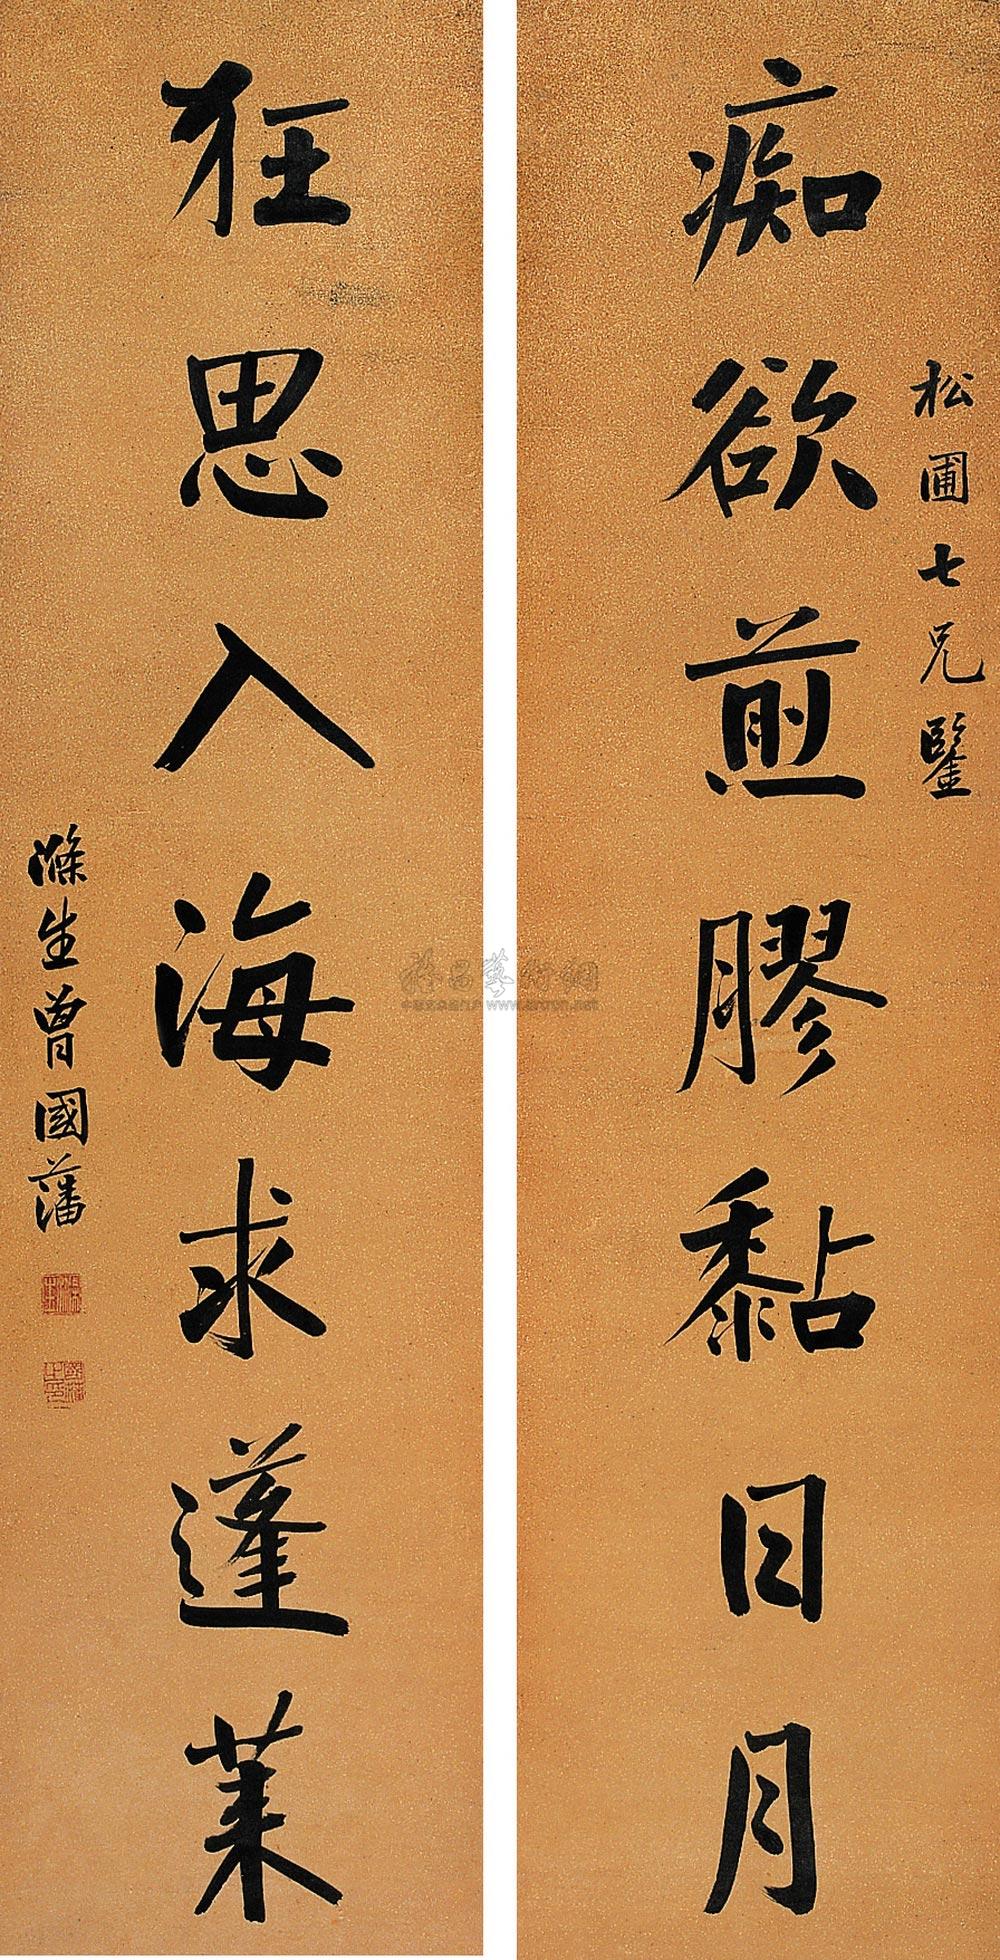 松圃七兄鑒
痴欲煎膠黏日月
狂思入海求蓬萊
滌生曾國藩